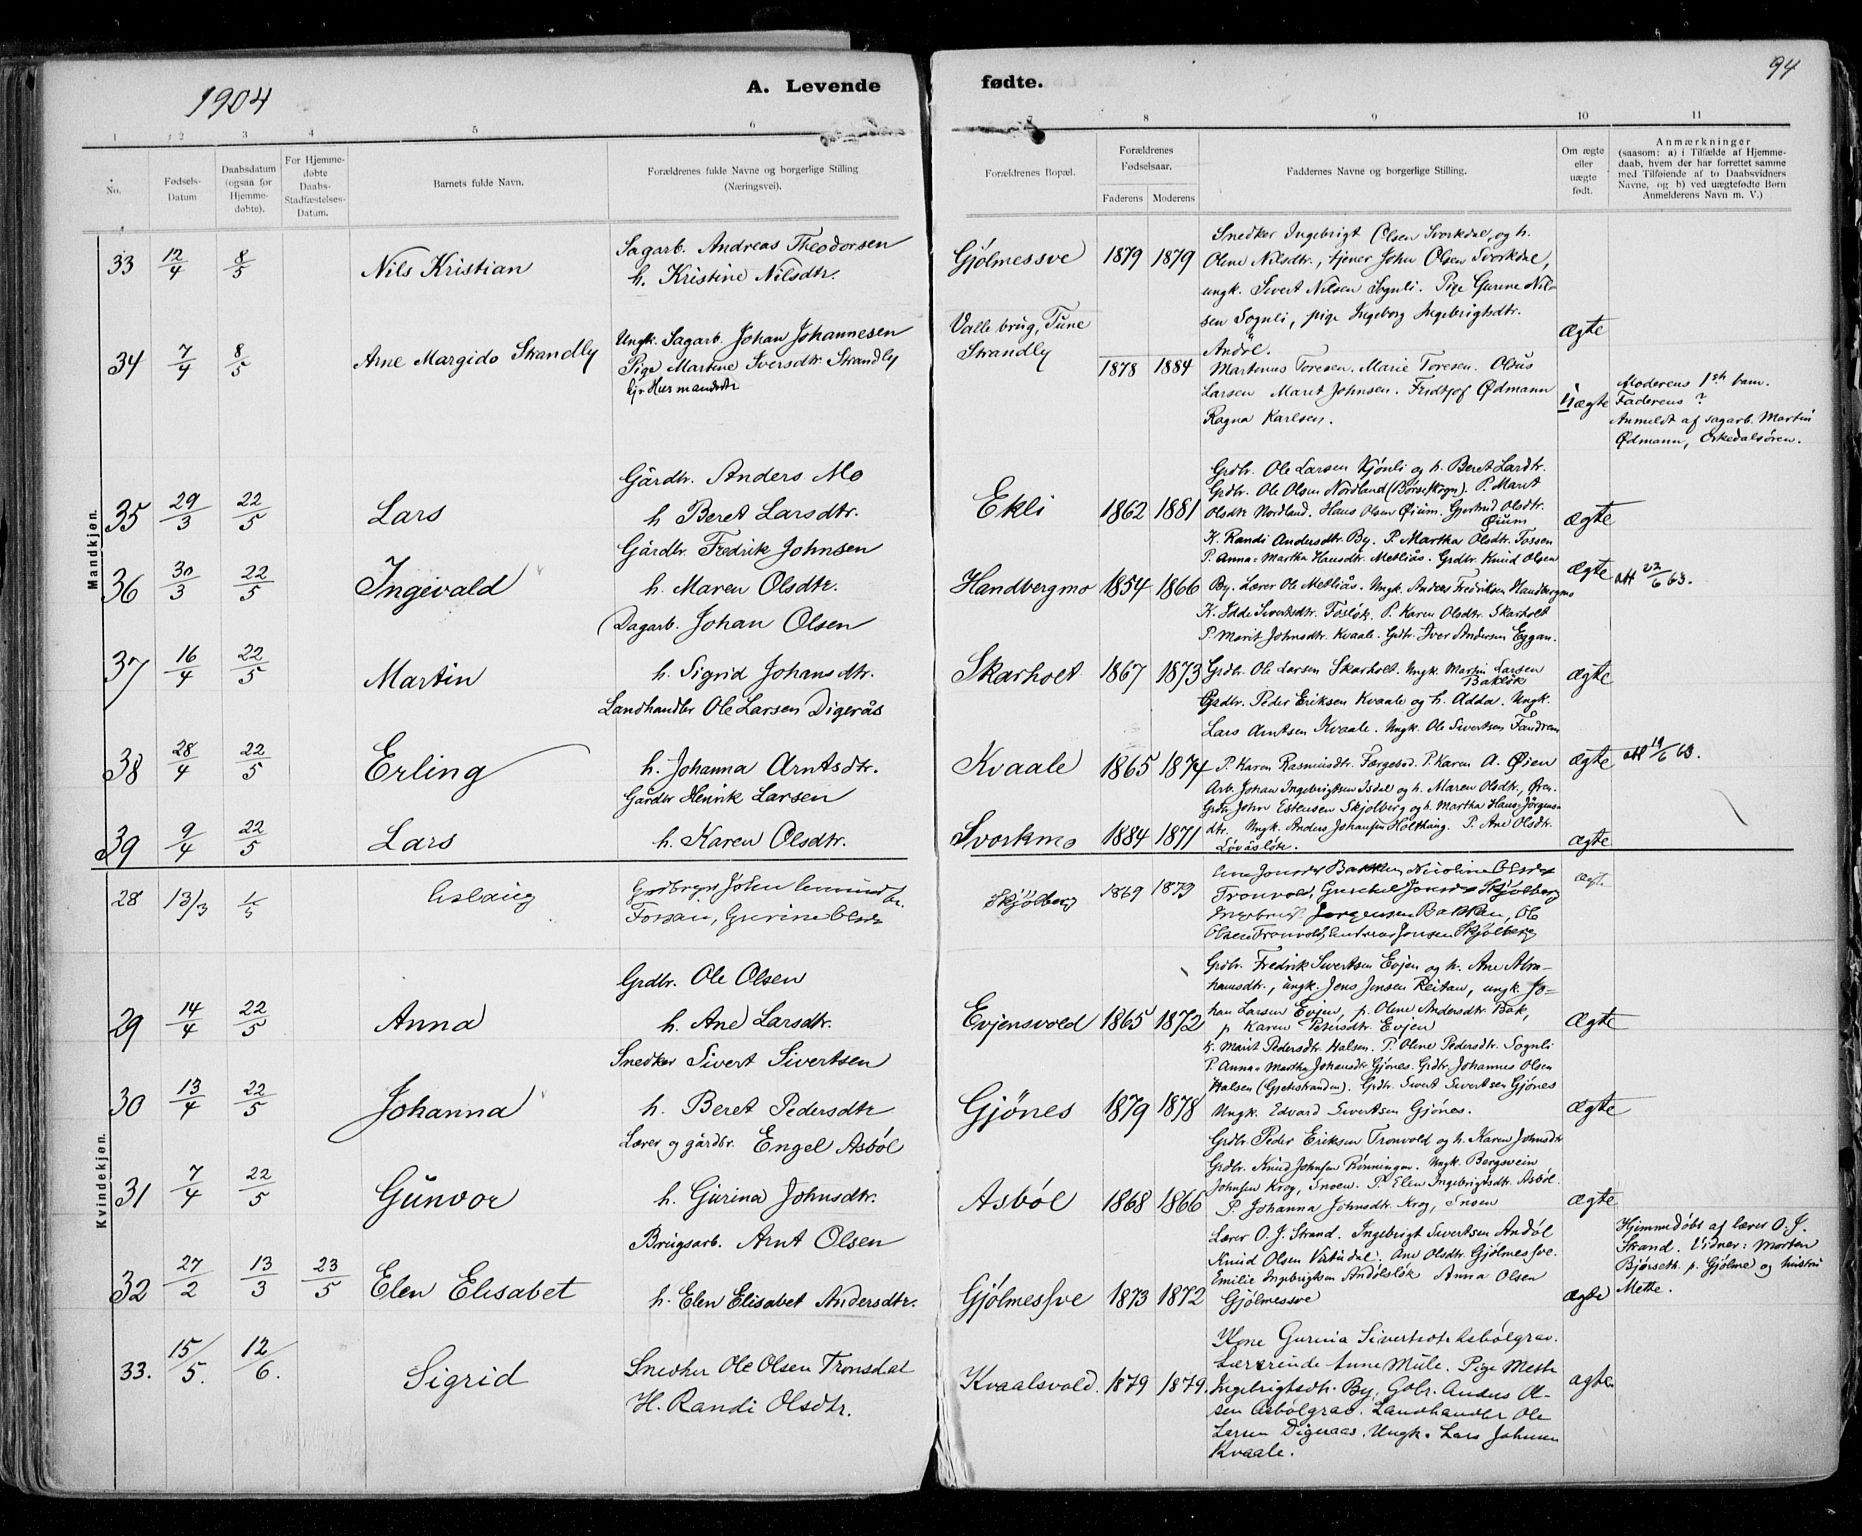 1904
A. Levende
fødte.
94
1 2 3 4 5 6 7 8 9 10 11
No.
Fødsels-
Datum
Daabsdatum
(ogsaa for
Hjemme-
døbte).
For Hjemme-
døbte
Daabs-
Stadfæstelses-
Datum.
Barnets fulde Navn.
Forældrenes fulde Navne og borgerlige Stilling
(Næringsvei).
Forældrenes Bopæl.
Forældrenes
Fødselsaar.
Faderens Moderens
Faddernes Navne og borgerlige Stilling.
Om ægte
eller
uægte
født.
Anmærkninger
(saasom: a) i Tilfælde af Hjemme-
daab, hvem der har forrettet samme
med Tilføiende af to Daabsvidners
Navne, og b) ved uægtefødte Børn
Anmelderens Navn m. V.)
Mandkjøn.
33 12/4 8/5 Nils Kristian
Sagarb. Andreas Theodorsen
h. Kristine Nilsdtr.
Gjølmessve 1879 1879
Snedker Ingebrigt Olsen Svorkdal, og h.
Oline Nilsdtr., tjener John Olsen Svorkdal,
ungk. Sivert Nilsen Sognli. Pige Gurine Nil-
sen Sognli, pige Ingeborg Ingebrigtsdtr.
Andøl.
ægte
34 7/4 8/5 Arne Margido Strandly
Ungk. Sagarb. Johan Johannesen
Pige Martine Iversdtr. Strandly
Valle brug, Tune
Strandly
1878 1884
Martinus Toresen. Marie Toresen.
Larsen Maret Johnsen. Fridtjof Ødmann
Ragna Karlsen.
Uægte
Moderens 1ste barn.
Faderens ?
Anmeldt af sagarb. Martin
Ødmann, Orkedalsøren.
35 29/3 22/5 Lars
Gårdbr. Anders Mo
h Beret Larsdtr.
Ekli 1862 1881
Grdbr. Ole Larsen Kjønli og h. Beret Larsdtr.
Grdbr. Ole Olsen Nordland (Børseskogn). P. Maret
Olsdtr Nordland. Hans Olsen Øium. Gjertrud Olsdtr.
Øium
ægte
36 30/3 22/5 Ingevald
Gårdbr. Fredrik Johnsen
h. Maren Olsdtr.
Handbergmo 1854 1866
K. Randi Andersdtr By. P. Martha Olsdtr. Fossen
P. Anna-Martha Hansdtr. Metliås. Grdbr. Knud Olsen
By. Lærer Ole Metliås. Ungk. Anders Fredriksen Handbergmo
ægte
att 23/6 63.
37 16/4 22/5 Martin
Dagarb. Johan Olsen
h. Sigrid Johansdtr.
Skarholt 1867 1873
K. Idde Sivertsdtr. Fosløk. P. Karen Olsdtr. Skarholt
P. Marit Johnsdtr. Kvaale. Grdbr. Iver Andersen Eggan.
Grdbr. Ole Larsen Skarholt. Ungk. Martin Larsen
Bakløk
ægte
38 28/4 22/5 Erling
Landhandler Ole Larsen Digerås
h. Johanna Arntsdtr.
Kvaale 1865 1874
Grdbr. Peder Eriksen Kvaale og h. Adda. Ungk.
Lars Arntsen Kvaale. Ungk. Ole Sivertsen Fandrem
P. Karen Rasmusdtr. P. Karen A. Øien
ægte
att 19/6 63.
39 9/4 22/5 Lars
Gårdbr Henrik Larsen
h. Karen Olsdtr.
Svorkmo 1884 1871
Arb. Johan Ingebrigtsen Isdal og h. Maren Olsdtr,
Grdbr. John Estensen Skjølberg og h. Martha Hans-Jørgens-
dtr. Ungk. Anders Johansen Holthaug. P. Ane Olsdtr.
Løvåsløk.
ægte
Kvindekjøn.
28 13/3 1/5 Aslaug
Forsan, Gurine Olsdr
Skjølberg 1869 1879
Ane Jonsdr Bakken, Nicoline Olsdr
Tronvold, Jonsdr Skjølberg
Jørgensen Bakken, Ole
Olsen Tronvold, Jonsen Skjølberg
ægte
29 14/4 22/5 Anna
Grdbr. Ole Olsen
h. Ane Larsdtr.
Evjensvold 1865 1872
Grdbr. Fredrik Sivertsen Evjen og h. Ane Abra-
hamsdtr., ungk. Jens Jensen Reitan, ungk. Jo-
han Larsen Evjen, p. Oline Andersdtr. Bak,
p. Karen Petersdtr. Evjen
ægte
30 13/4 22/5 Johanna
Snedker Sivert Sivertsen
h. Beret Pedersdtr
Gjønes 1879 1878
K. Marit Pedersdtr. Halsen. P. Oline Pedersdtr. Sognli
P. Anna-Martha Johansdtr. Gjønes. Grdbr. Johannes Olsen
Halsen (Gjetistranden). Grdbr. Sivert Sivertsen Gjønes
Ungk. Edvard Sivertsen Gjønes.
ægte
31 7/4 22/5 Gunvor
Lærer og gårdbr. Engel Asbøl
h. Gurina Johnsdtr.
Asbøl 1868 1866
Grdbr. Peder Eriksen Tronvold og h. Karen Johnsdtr
Grdbr. Knud Johnsen Rønningen. Ungk. Bergsvein
Johnsen Krog, Snoen. P. Elen Ingebrigtsdtr. Asbøl.
P. Johanna Johnsdtr. Krog, Snoen
ægte
32 27/2 13/3 23/5 Elen Elisabet
Brugsarb. Arnt Olsen
h. Elen Elisabet Andersdtr.
Gjølmessve 1873 1872
Lærer O. J. Strand. Ingebrigt Sivertsen Andøl
Knud Olsen Ane Olsdtr. Gjølmessve.
Emilie Ingebrigtsen Andølsløk Anna Olsen
Gjølmessve
ægte
Hjemmedøbt af lærer O. J.
Strand. Vidner: Morten
Bjørseth p. Gjølme og hustru
Mette.
33. 15/5. 12/6. Sigrid
Snedker Ole Olsen Tronsdal
H. Randi Olsdtr.
Kvaalsvold. 1879 1879.
Kone Gurina Asbølgrav.
Lærerinde Anne Mule. Pige Mette
Ingebrigtsdtr. By. Gbr. Anders Ol-
sen Asbølgrav. Landhandler Ole
Larsen Digeraas. Ungk. Lars Johnsen
Kvaale.
ægte